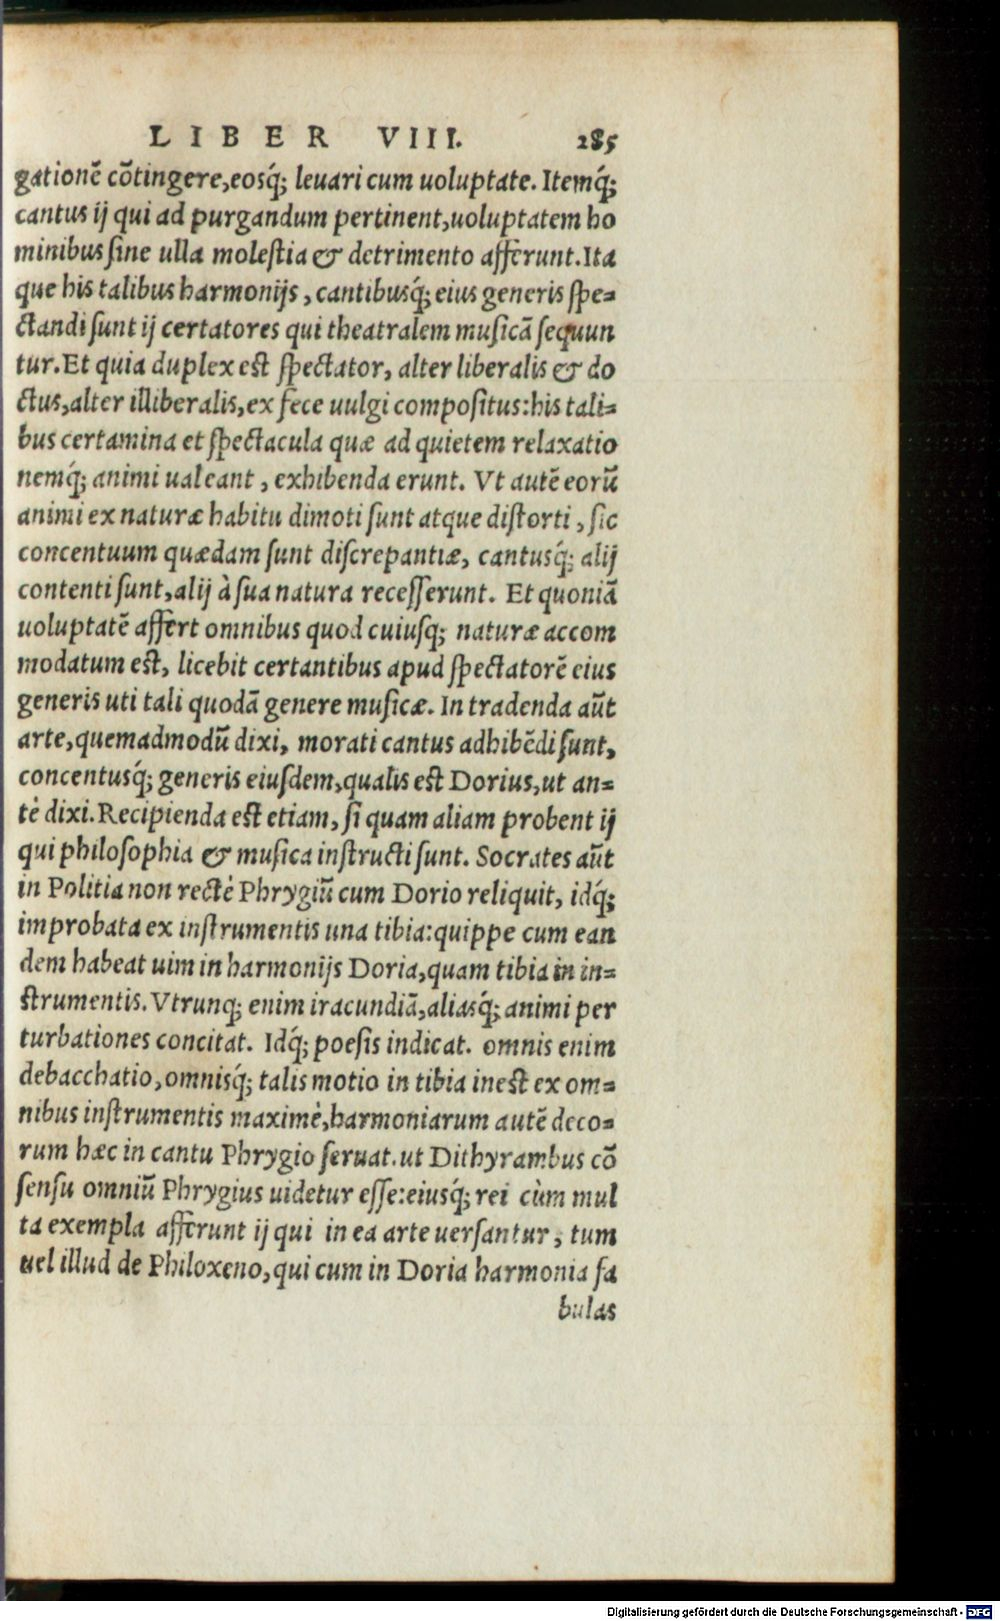 LIBER VIII. 285
gationē cōtingere,eosq́; leuari cum uoluptate. Itemq́;
cantus ij qui ad purgandum pertinent,uoluptatem ho
minibus ſine ulla moleſtia & detrimento afferunt.Ita
que his talibus harmonijs, cantibusq́; eius generis ſpe-
ctandi ſunt ij certatores qui theatralem muſicā ſequun
tur.Et quia duplex eſt ſpectator, alter liberalis & do
ctus,alter illiberalis,ex fece uulgi compoſitus:his tali-
bus certamina et ſpectacula quæ ad quietem relaxatio
nemq́; animi ualeant, exhibenda erunt. Vt autē eorū
animi ex naturæ habitu dimoti ſunt atque diſtorti, ſic
concentuum quædam ſunt diſcrepantiæ, cantusq́; alij
contenti ſunt,alij à ſua natura receſſerunt. Et quoniā
uoluptatē affert omnibus quod cuiuſq; naturæ accom
modatum eſt, licebit certantibus apud ſpectatorē eius
generis uti tali quodā genere muſicæ. In tradenda aūt
arte,quemadmodū dixi, morati cantus adhibēdi ſunt,
concentusq́; generis eiuſdem,qualis eſt Dorius,ut an-
tè dixi.Recipienda eſt etiam, ſi quam aliam probent ij
qui philoſophia & muſica inſtructi ſunt. Socrates aūt
in Politia non rectè Phrygiū cum Dorio reliquit, idq́;
improbata ex inſtrumentis una tibia:quippe cum ean
dem habeat uim in harmonijs Doria,quam tibia in in-
ſtrumentis.Vtrunq; enim iracundiā,aliasq́; animi per
turbationes concitat. Idq́; poeſis indicat. omnis enim
debacchatio,omnisq́; talis motio in tibia ineſt ex om-
nibus inſtrumentis maximè,harmoniarum autē deco-
rum hæc in cantu Phrygio ſeruat.ut Dithyrambus cō
ſenſu omniū Phrygius uidetur eſſe:eiusq́; rei cùm mul
ta exempla afferunt ij qui in ea arte uerſantur, tum
uel illud de Philoxeno,qui cum in Doria harmonia fa
bulas
Digitalisierung gefördert durch die Deutsche Forschungsgemeinschaft - DFG